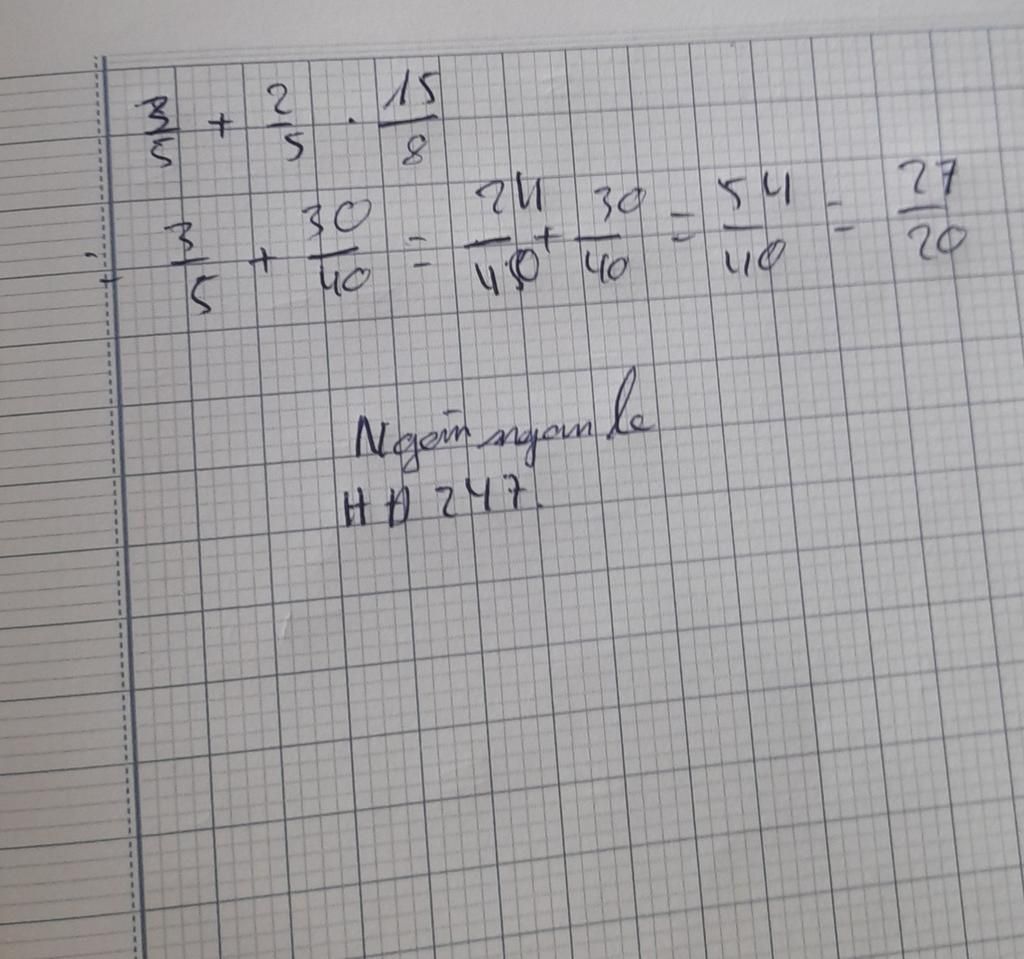 3/5 + 2/5 . 15/8
= 3/5 + 30/40 = 24/40 + 30/40 = 54/40 = 27/20
Ngân ngan le
HD 247.